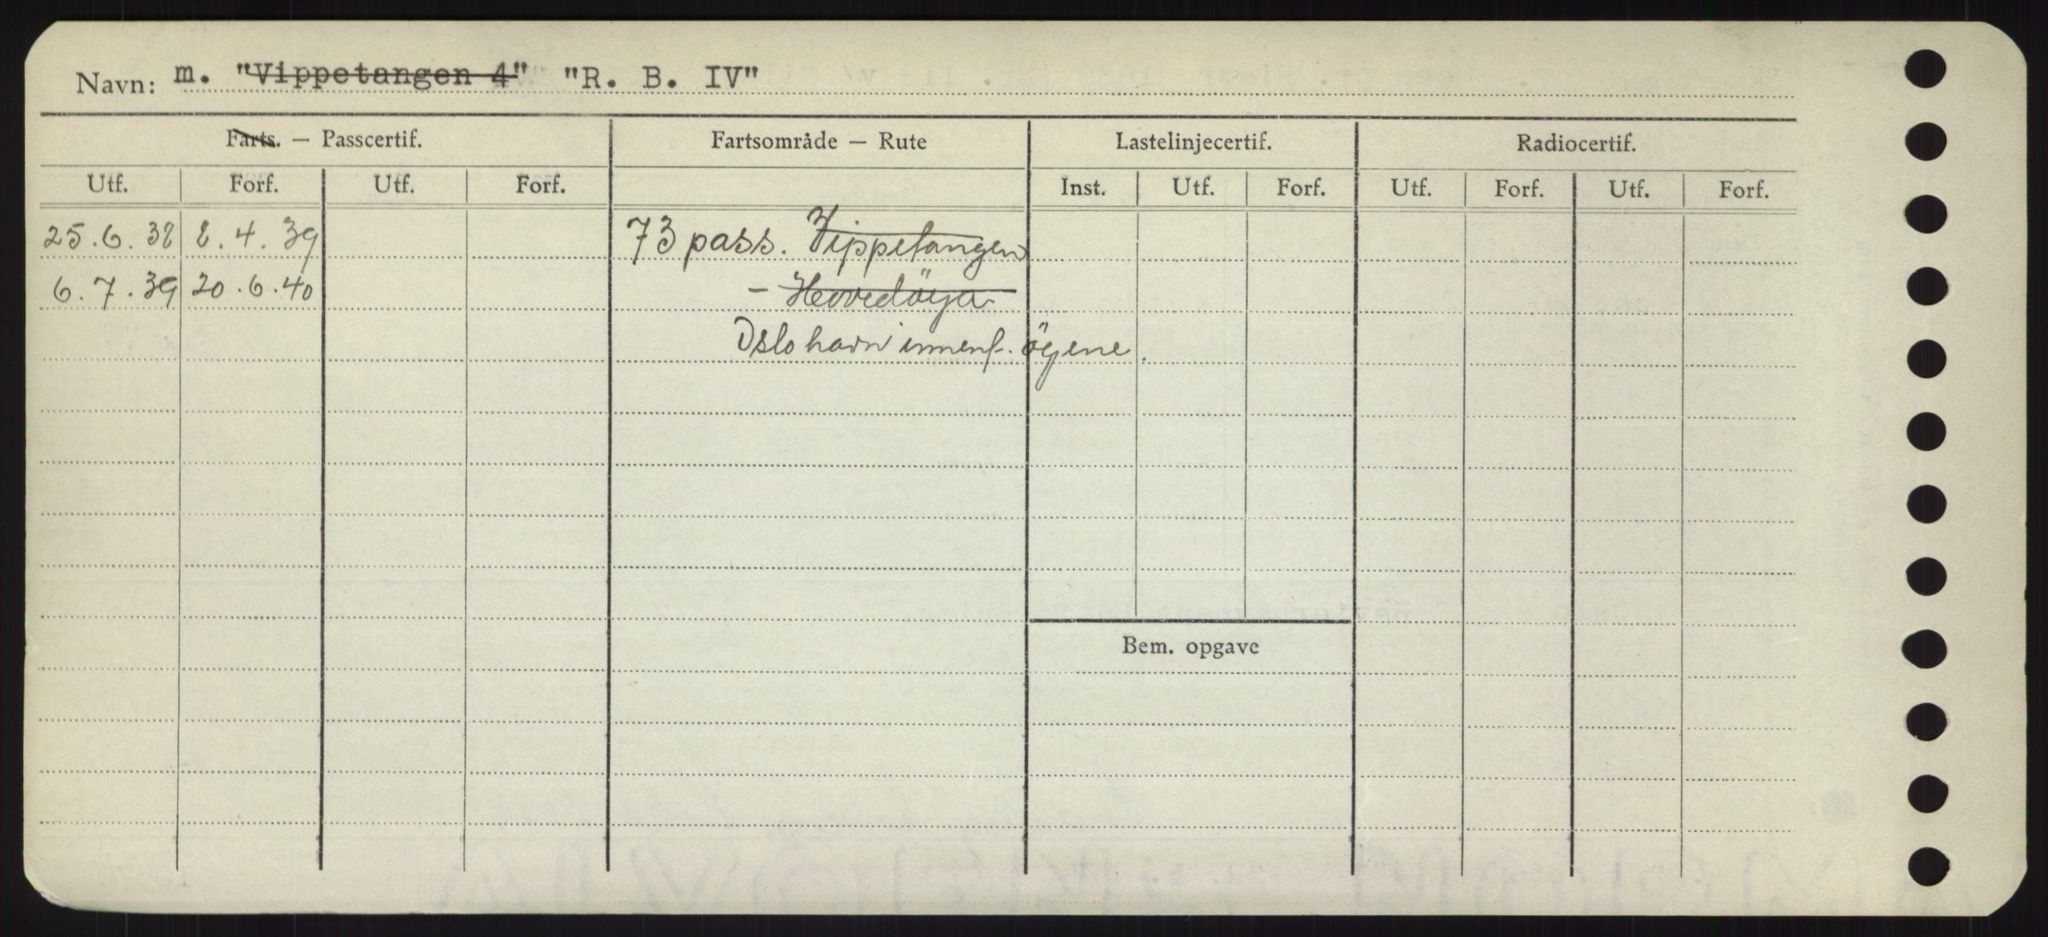 Navn: m. "Vippetangen 4" "R. B. IV"
Farts. — Passcertif. Fartsområde — Rute Lastelinjecertif. Radiocertif.
Utf. Forf. Utf. Forf. Inst. Utf. Forf. Utf. Forf. Utf. Forf.
25.6.38 8.4.39 73 pass. Vippetangen
6.7.39 20.6.40 - Hovedøya
Oslo havn innenf. öyene.
Bem. opgave